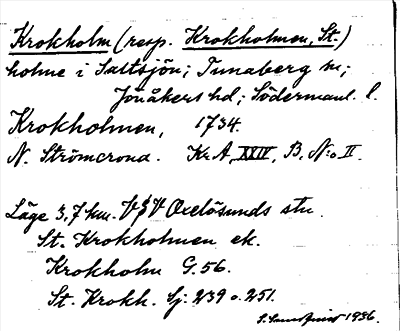 Krokholm (resp. Krokholmen, St.)
holme i Saltsjön; Tunaberg sn;
Jönåkers hd; Södermanl. l.
Krokholmen, 1734.
N. Strömcrona. Kr.A, XXIV, B, N:o II.
Läge 3,7 km. V§V Oxelösunds stn.
St. Krokholmen ek.
Krokholm G. 56.
St. Krokh. Sj. 239 o. 251.
1936.